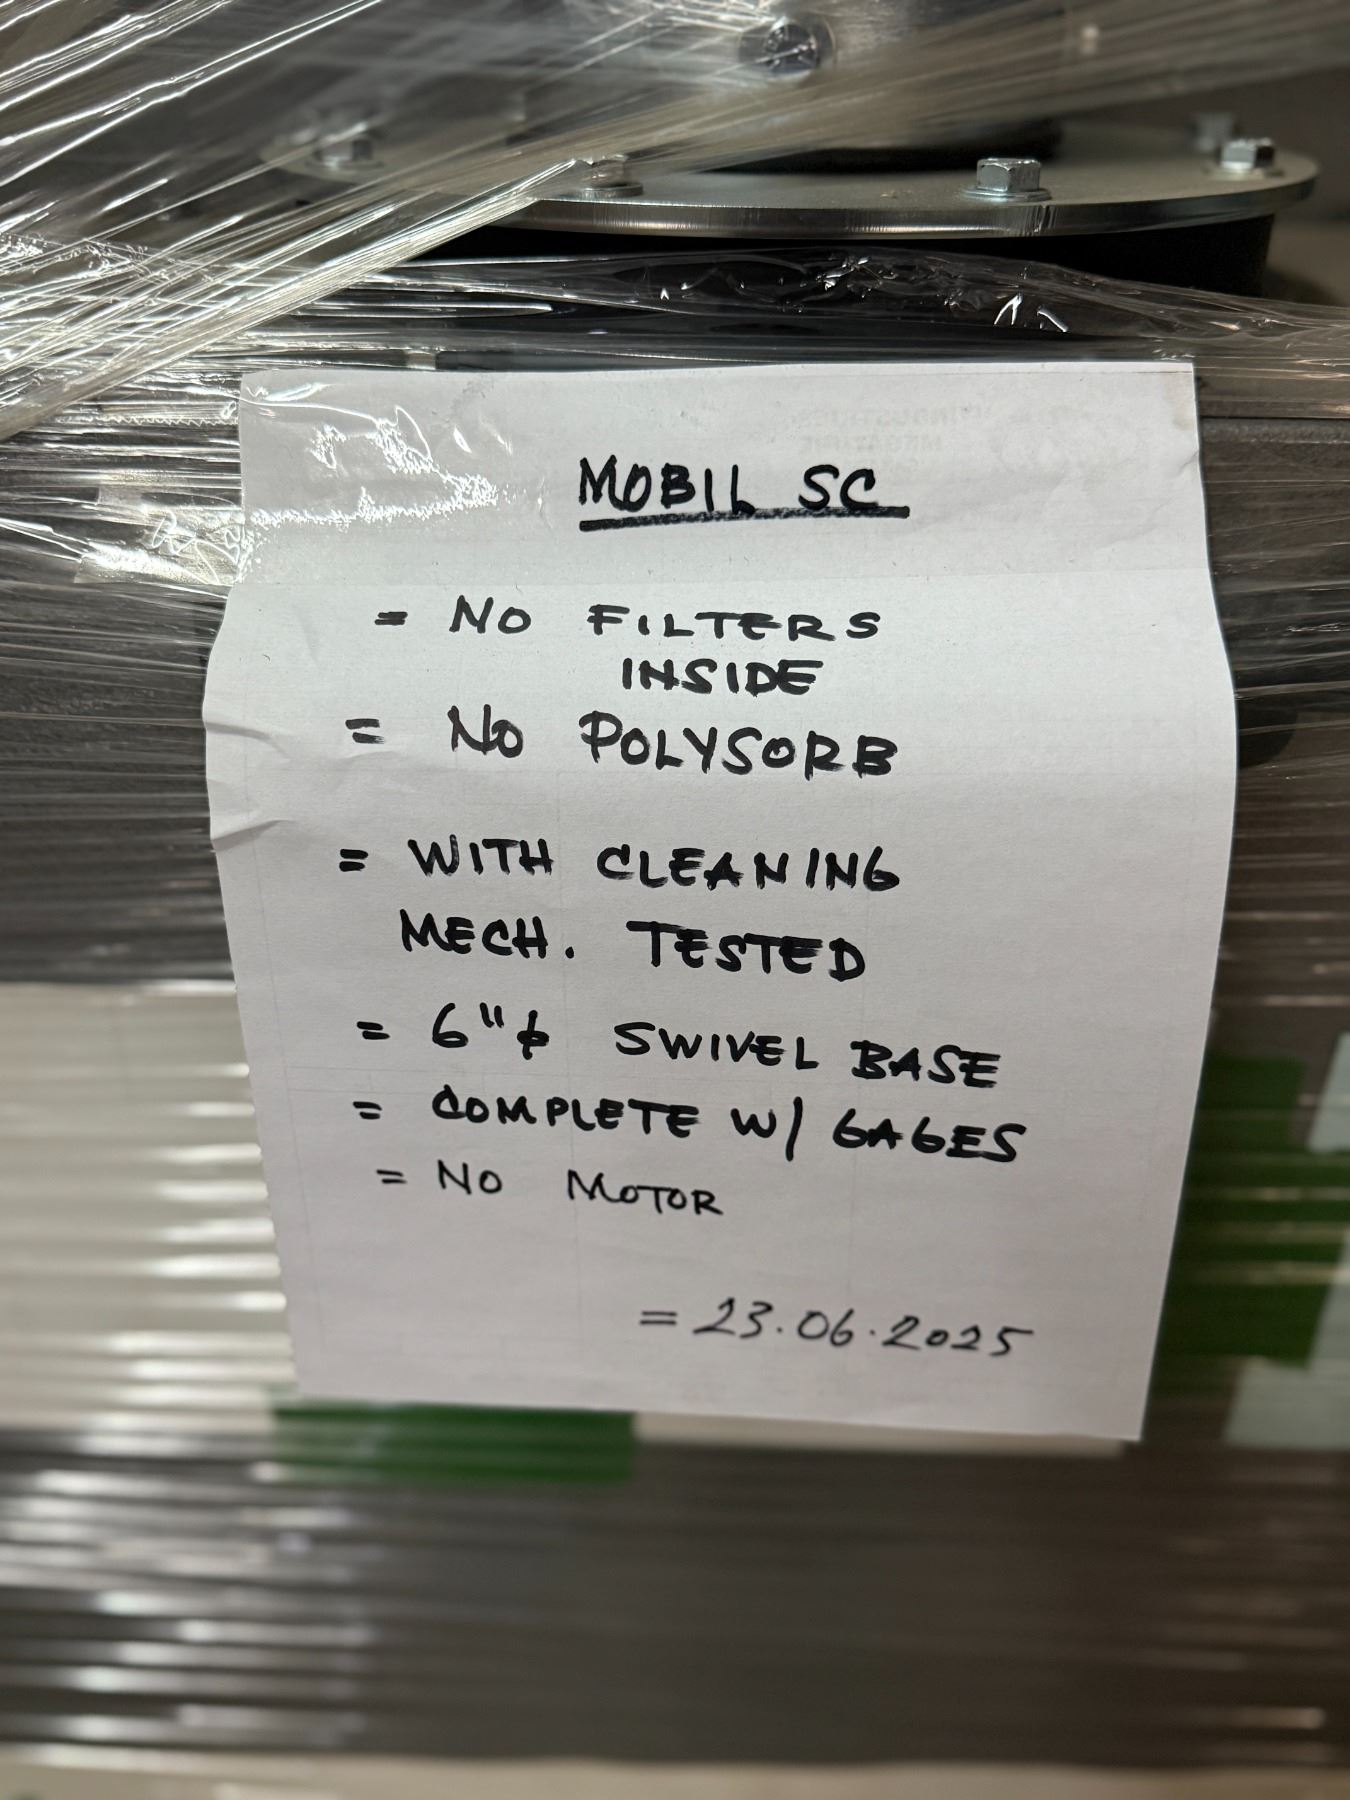 MOBIL SC
= NO FILTERS
INSIDE
= NO POLYSORB
= WITH CLEANING
MECH. TESTED
= 6"φ SWIVEL BASE
= COMPLETE W/ GAGES
= NO MOTOR
= 23.06.2025